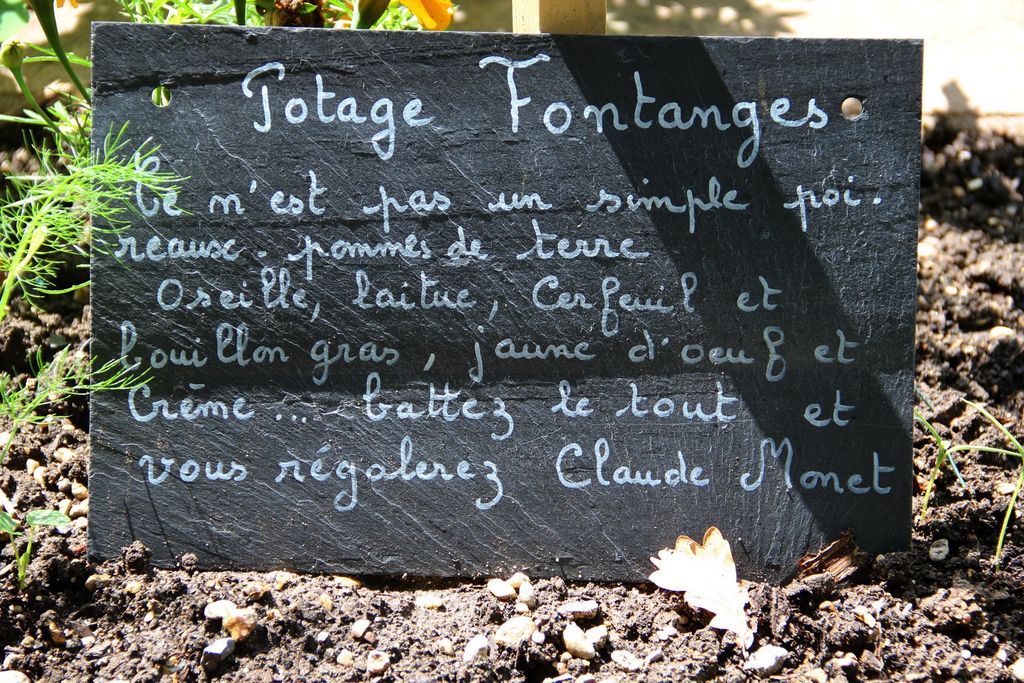 Potage Fontanges
Ce n'est pas un simple poi.
reaux. pommes de terre
Oseille, laitue, Cerfeuil et
bouillon gras, jaune d'oeuf et
Crème... battez le tout et
vous régalerez Claude Monet